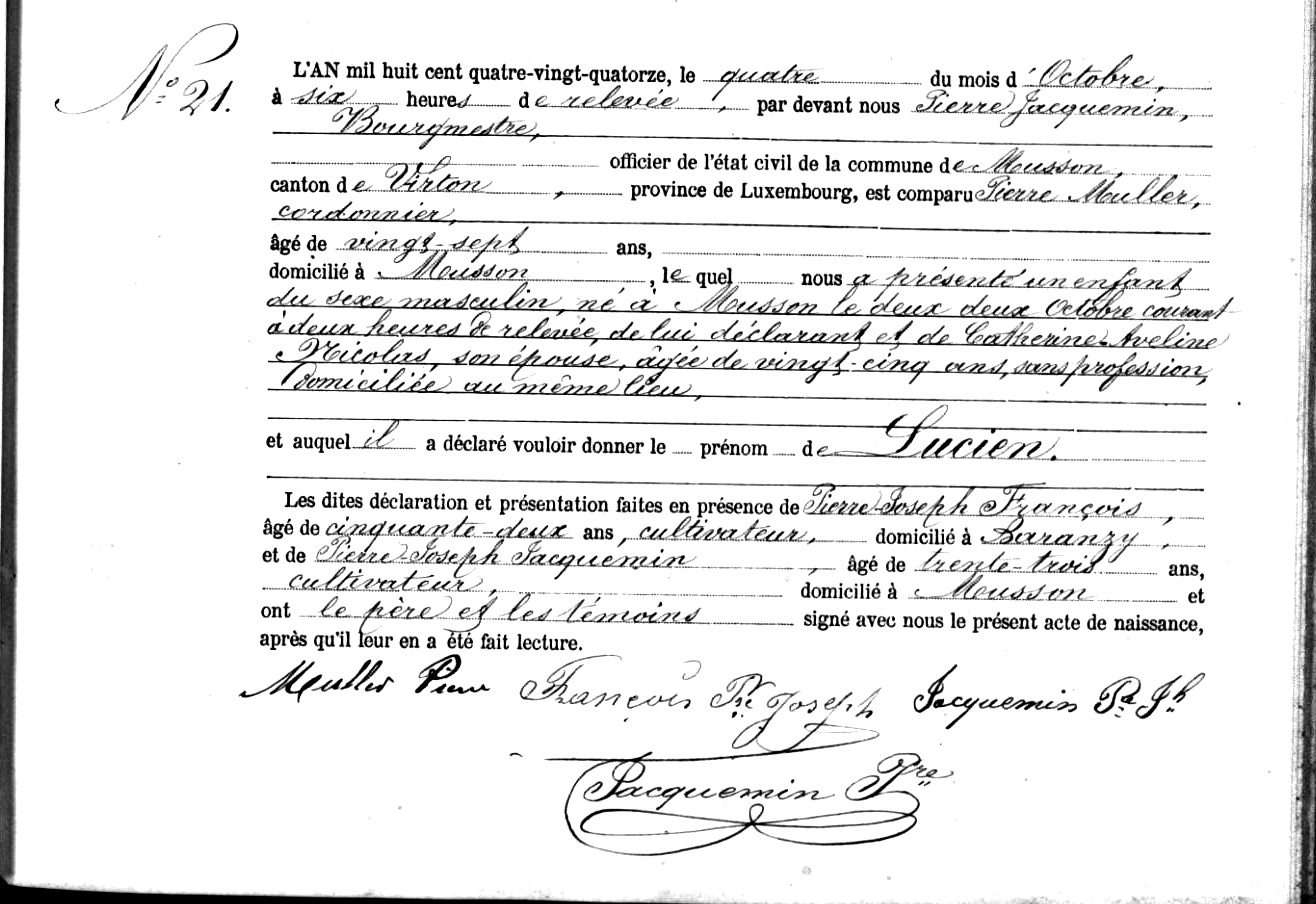 N° 21.
L'AN mil huit cent quatre-vingt-quatorze, le quatre du mois d'Octobre,
à six heures de relevée, par devant nous Pierre Jacquemin,
Bourgmestre,
officier de l'état civil de la commune de Musson,
canton de Virton, province de Luxembourg, est comparu Pierre Muller,
cordonnier,
âgé de vingt-sept ans,
domicilié à Musson, le quel nous a présenté un enfant
du sexe masculin, né à Musson le deux deux Octobre courant
à deux heures de relevée, de lui déclarant et de Catherine Aveline
Nicolas, son épouse, âgée de vingt-cinq ans, sans profession,
domiciliée au même lieu,
et auquel il a déclaré vouloir donner le prénom de Lucien.
Les dites déclaration et présentation faites en présence de Pierre-Joseph François,
âgé de cinquante-deux ans, cultivateur, domicilié à Baranzy,
et de Pierre Joseph Jacquemin, âgé de trente-trois ans,
cultivateur, domicilié à Musson et
ont le père et les témoins signé avec nous le présent acte de naissance,
après qu'il leur en a été fait lecture.
Muller Pierre François Pre Joseph Jacquemin Pre Jh
Jacquemin Pre